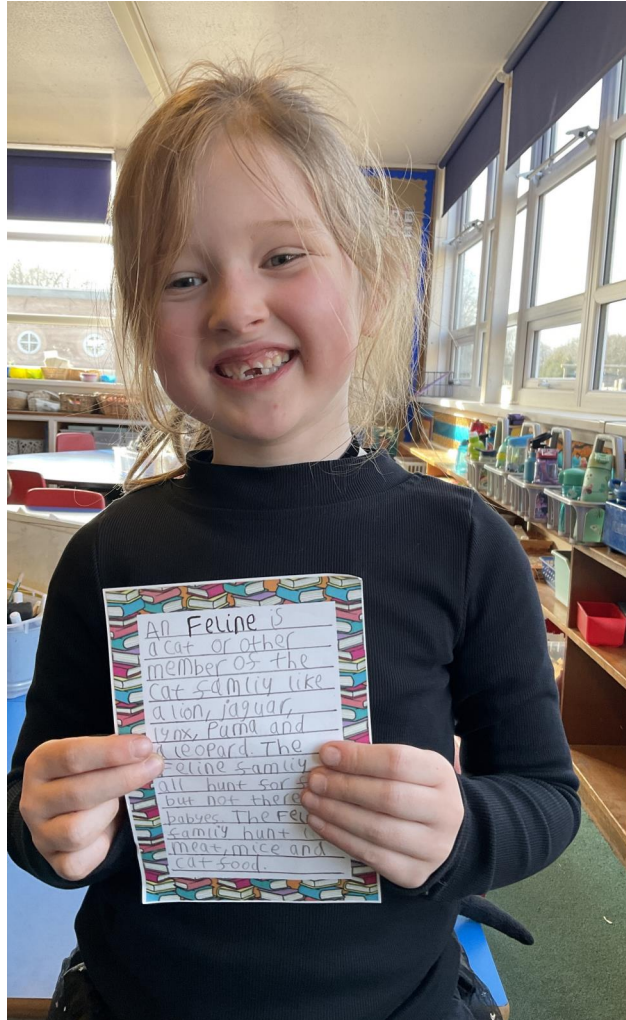 An Feline is
a cat or other
member of the
cat samliy like
a lion, jaguar,
lynx, Puma and
a leopard. The
Feline samliy
all hunt for
but not there
babyes. The Fel
samliy hunt
meat, mice and
cat food.